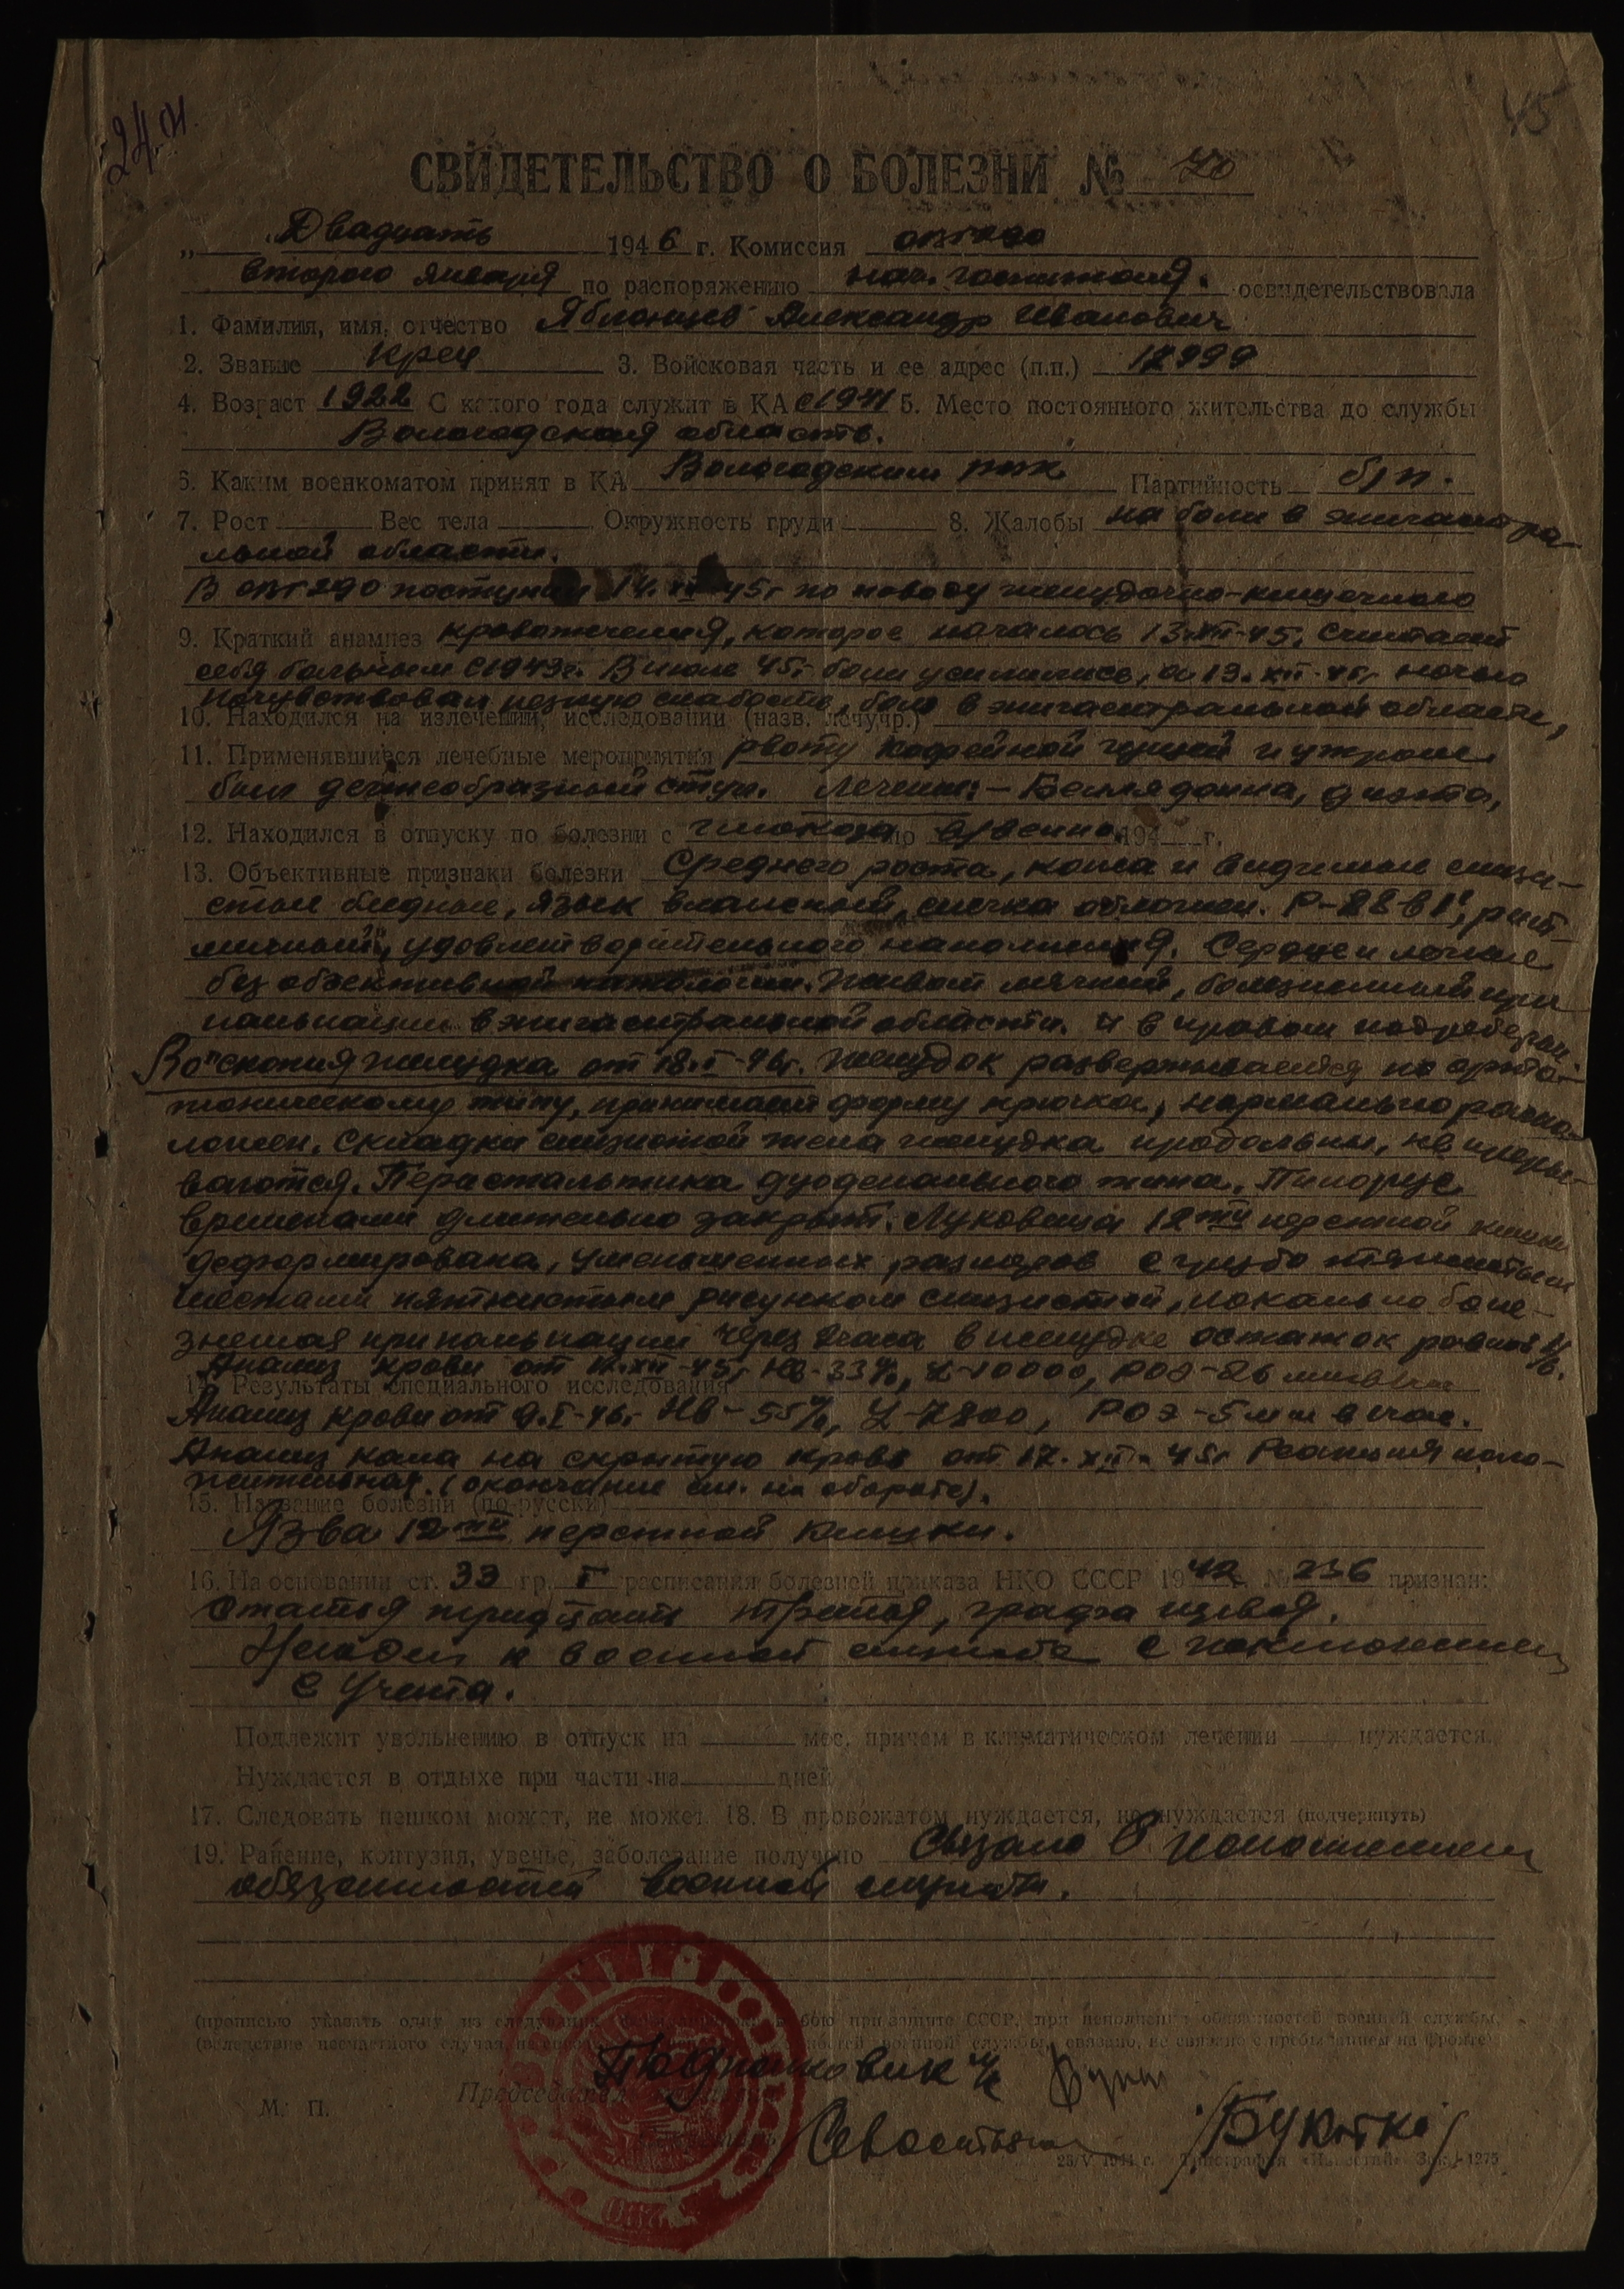 24.01.
45
СВИДЕТЕЛЬСТВО О БОЛЕЗНИ № 70
„ Двадцать 1946 г. Комиссия
второго января по распоряжению нач. госпиталя. освидетельствовала
1. Фамилия, имя, отчество Яблонцев Александр Иванович
2. Звание Кр-ец 3. Войсковая часть и ее адрес (п.п.) 12999
4. Возраст 1922 С какого года служит в КА с 1941 5. Место постоянного жительства до службы
Вологодская область.
6. Каким военкоматом принят в КА Вологодским Партийность б/п.
7. Рост Вес тела Окружность груди 8. Жалобы на боли в эпигастра-
льной области.
В поступил 14.XII-45г по поводу желудочно-кишечного
9. Краткий анамнез кровотечения, которое началось 13.XII-45. Считает
себя больным с 1943г. В июле 45г боли усилились, а 13.XII-45г ночью
почувствовал резкую слабость, боль в эпигастральной области,
10. Находился на излечении, исследовании (назв. лечучр.)
11. Применявшиеся лечебные мероприятия рвоту кофейной гущей и утром
был дегтеобразный стул. Лечение: - Белладонна, диэта,
12. Находился в отпуску по болезни с глюкоза по в/венно 194 г.
13. Объективные признаки болезни Среднего роста, кожа и видимые слизи-
стые бледные, язык влажный, слегка обложен. Р-88 в 1', рит-
мичный, удовлетворительного наполнения. Сердце и легкие
без объективной патологии. Живот мягкий, болезненный при
пальпации в эпигастральной области и в правом подреберьи
Ro"скопия желудка от 18.I-46г. Желудок развертывается по орто-
тоническому типу, принимает форму крючка, нормально распо-
ложен. Складки слизистой тела желудка продольны, не преры-
ваются. Перистальтика дуоденального типа. Пилорус
временами длительно закрыт. Луковица 12ти перстной кишки
деформирована, уменьшенных размеров с грубо тяжистым
местами пятнистым рисунком слизистой, локально боле-
зненная при пальпации через 2 часа в желудке остаток равный
Анализ крови от XII-45г Нв-33%, L-10000, РОЭ-26 мм в час
14. Результаты специального исследования
Анализ крови от 9.I-46г Нв-55%, L-7800, РОЭ-5 мм в час.
Анализ кала на скрытую кровь от 17.XII-45г Реакция поло-
жительная. (окончание см. на обороте).
15. Название болезни (по-русски)
Язва 12ти перстной кишки.
16. На основании ст. 33 гр. I расписания болезней приказа НКО СССР 1942 № 336 признан:
Статья тридцать третья, графа первая.
Негоден к военной службе с исключением
с учета.
Подлежит увольнению в отпуск на мес. причем в климатическом лечении нуждается.
Нуждается в отдыхе при части на дней
17. Следовать пешком может, не может. 18. В провожатом нуждается, не нуждается (подчеркнуть)
19. Ранение, контузия, увечье, заболевание получено Связано с исполнением
обязанностей военной службы.
(прописью указать одну из следующих в бою при защите СССР, при исполнении обязанностей военной службы,
(вследствие несчастного случая, не связано, не связано с пребыванием на фронте)
Подполковник м/с
Председатель
М. П.
Севостьян
28/V 1944 г. Типография «Известий» Зак. 1275